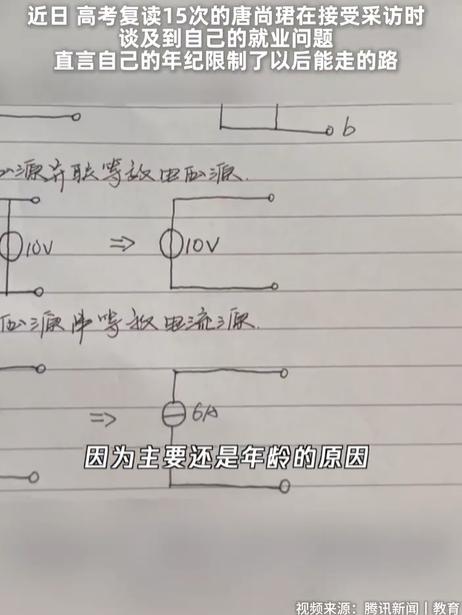 近日 高考复读15次的唐尚珺在接受采访时
谈及到自己的就业问题
直言自己的年纪限制了以后能走的路
b
源并联等效电压源.
10V
⇒
10V
压源串等效电流源.
⇒
6A
因为主要还是年龄的原因
视频来源：腾讯新闻丨教育